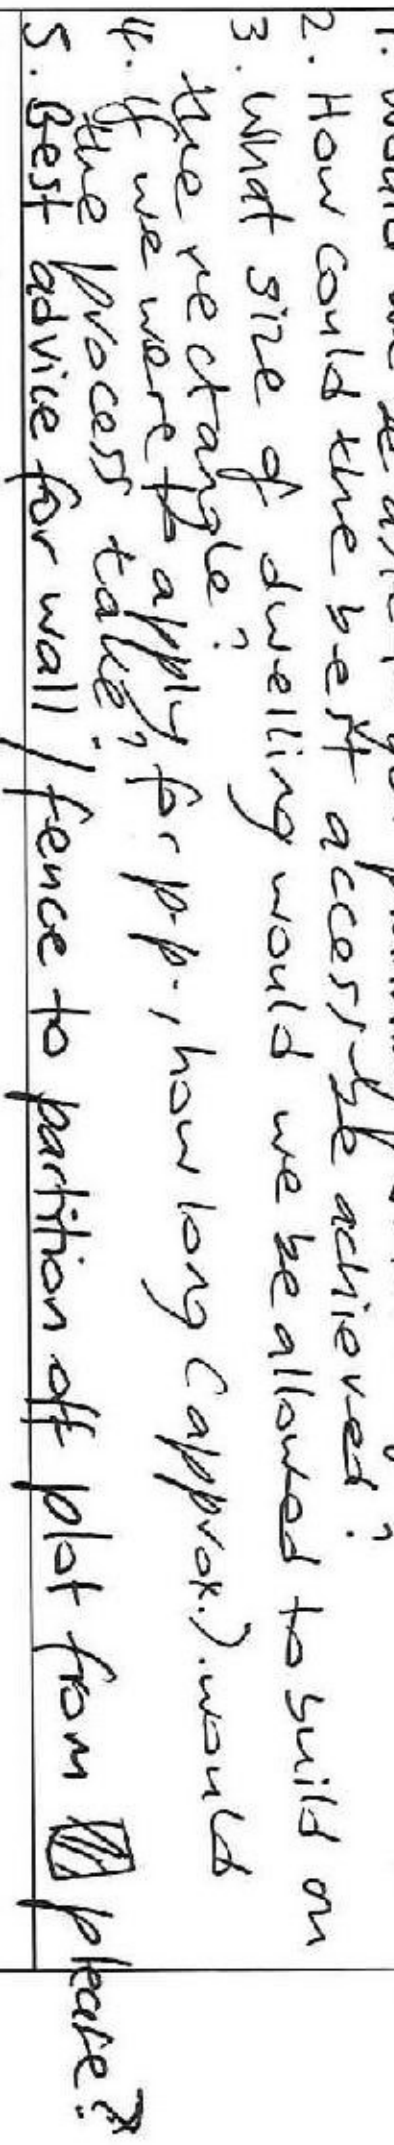 2. How could the best access be achieved?
3. What size of dwelling would we be allowed to build on
the rectangle?
4. If we were to apply for p.p., how long (approx.) would
the process take?
5. Best advice for wall/fence to partition off plot from please?